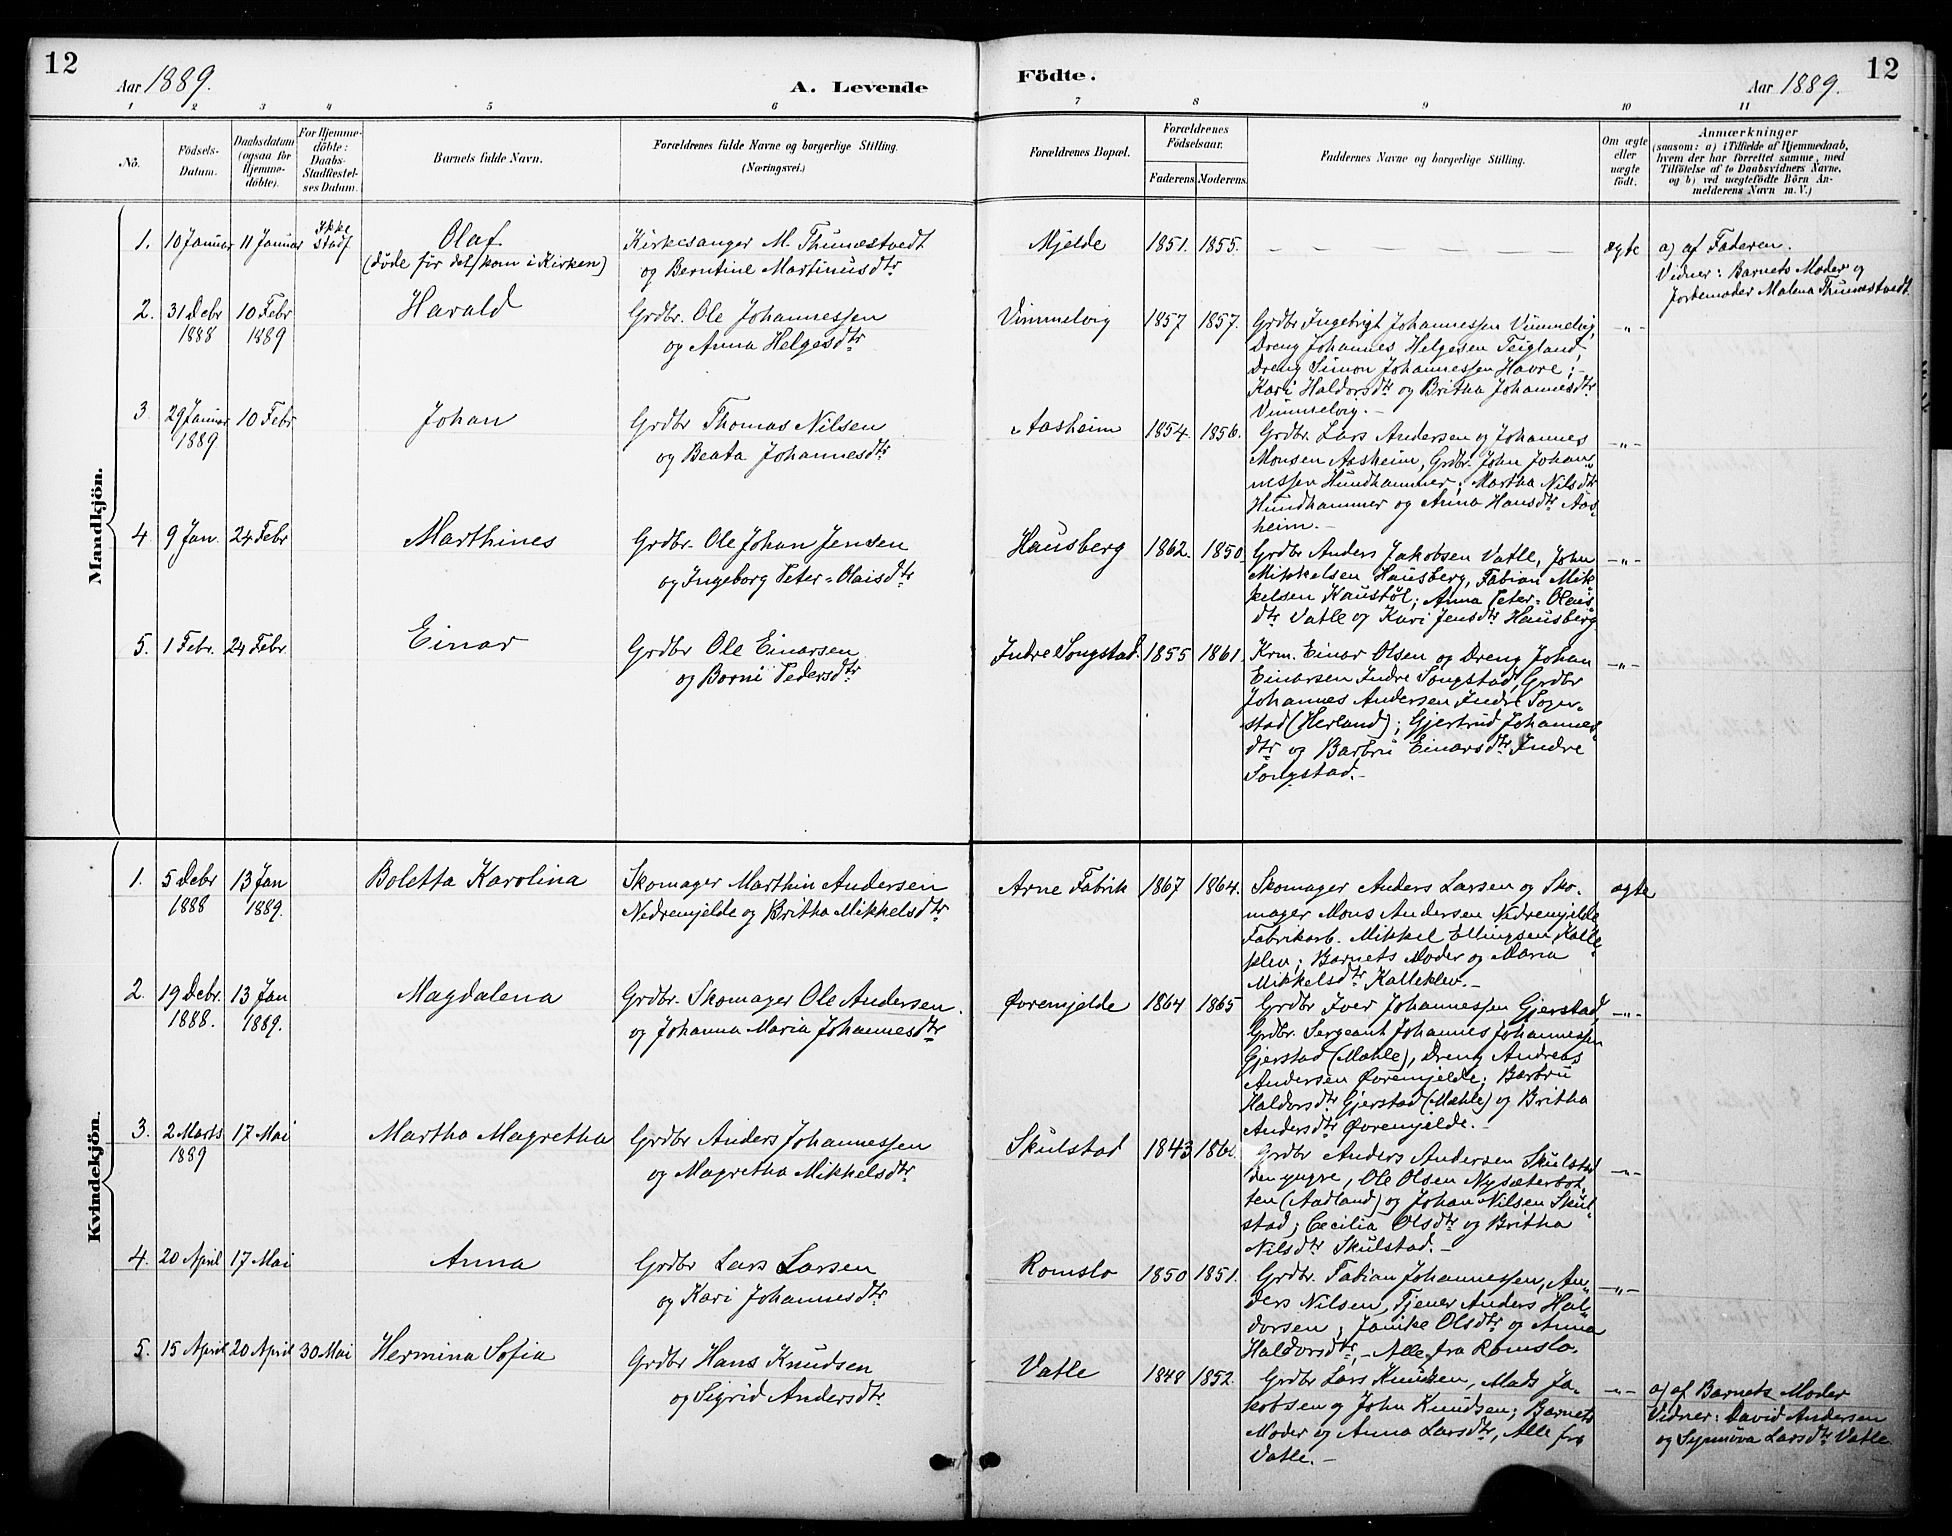 12
Aar 1889.
A. Levende
Födte.
Aar 1889.
12
1 2 3 4 5 6 7 8 9 10 11
No.
Födsels-
Datum.
Daabsdatum
(ogsaa for
Hjemme-
döbte).
For Hjemme-
döbte:
Daabs-
Stadfæstel-
ses Datum.
Barnets fulde Navn.
Forældrenes fulde Navne og borgerlige Stilling.
(Næringsvei.)
Forældrenes Bopæl.
Forældrenes
Födselsaar.
Faderens. Moderens.
Faddernes Navne og borgerlige Stilling.
Om ægte
eller
uægte
födt.
Anmærkninger
(saasom: a) i Tilfælde af Hjemmedaab,
hvem der har forrettet samme, med
Tilföielse af to Daabsvidners Navne,
og b) ved uægtefödte Börn An-
melderens Navn m. V.)
Mandkjön.
1. 10 Januar 11 Januar Ikke stadf
Olaf
(døde før det kom i Kirken)
Kirkesanger M. Thunestvedt
og Berntine Martinusdtr
Mjelde 1851. 1855.
ægte
a) af Faderen.
Vidner: Barnets Moder og
Jordemoder Malena Thunestvedt
2. 31 Debr 10 Febr
1888 1889
Harald
Grdbr. Ole Johannessen
og Anna Helgesdtr
Vimmelvig 1857 1857.
Grdbr Ingebrigt Johannessen Vimmelvig,
Dreng Johannes Helgesen Teigland,
Dreng Simon Johannessen Havre; -
Kari Haldorsdtr og Britha Johannesdtr
Vimmelvig. -
-"-
3. 29 Januar 10 Febr
1889
Johan
Grdbr Thomas Nilsen
og Beata Johannesdtr
Aasheim 1854. 1856.
Grdbr. Lars Andersen og Johannes
Monsen Aasheim, Grdbr. John Johan-
nessen Hundhammer; Martha Nilsdtr
Hundhammer og Anna Hansdtr Aas-
heim. -
-"-
4. 9 Jan. 24 Febr
Marthines
Grdbr. Ole Johan Jensen
og Ingeborg Peter-Olaisdtr
Hausberg 1862. 1850.
Grdbr Anders Jakobsen Vatle, John
Mikkelsen Hausberg, Fabian Mik-
kelsen Kaustøl; Anna Peter-Olais-
dtr Vatle og Kari Jensdtr Hausberg
-"-
5. 1 Febr. 24 Febr.
Einar
Grdbr Ole Einarsen
og Borni Pedersdtr
Indre Songstad. 1855 1861.
Krm. Einar Olsen og Dreng Johan
Einarsen Indre Songstad, Grdbr
Johannes Andersen Indre Songs-
stad (Herland); Gjertrud Johannes-
dtr og Barbru Einarsdtr Indre
Songstad. -
-"-
Kvindekjön.
1. 5 Debr 13 Jan
1888 1889.
Boletta Karolina
Skomager Marthin Andersen
Nedremjelde og Britha Mikkelsdtr
Arne Fabrik 1867 1864.
Skomager Anders Larsen og Sko-
mager Mons Andersen Nedremjelde
Fabrikarb. Mikkel Ellingsen Kalle-
klev; Barnets Moder og Maria
Mikkelsdtr Kalleklev. -
ægte
2. 19 Debr. 13 Jan
1888. 1889.
Magdalena
Grdbr. Skomager Ole Andersen
og Johanna Maria Johannesdtr
Øvremjelde 1864 1865
Grdbr Iver Johannessen Gjerstad,
Grdbr. Sergeant Johannes Johannessen
Gjerstad (Mæhle), Dreng Andreas
Andersen Øvremjelde; Barbru
Haldorsdtr Gjerstad (Mæhle) og Britha
Andersdtr Øvremjelde. -
-"-
3. 2 Marts 17 Mai
1889
Martha Magretha
Grdbr Anders Johannessen
og Magretha Mikkelsdtr
Skulstad 1843
Grdbr Anders Andersen Skulstad
den yngre, Ole Olsen Nysæterbot-
ten (Aadland) og Johan Nilsen Skul-
stad; Cecilia Olsdtr og Britha
Nilsdtr Skulstad. -
-"-
4. 20 April 17 Mai
Anna
Grdbr Lars Larsen
og Kari Johannesdtr
Romslo 1850 1851.
Grdbr. Fabian Johannessen, An-
ders Nilsen, Tjener Anders Hal-
dorsen; Janike Olsdtr og Anna
Haldorsdtr, - Alle fra Romslo.
-"-
5. 15 April 20 April 30 Mai
Hermina Sofia
Grdbr Hans Knudsen
og Sigrid Andersdtr
Vatle 1848 1852.
Grdbr Lars Knudsen, Mads Ja-
kobsen og John Knudsen; Barnets
Moder og Anna Larsdtr, Alle fra
Vatle. -
-"-
a) af Barnets Moder
Vidner: David Andersen
og Synnøva Larsdtr Vatle